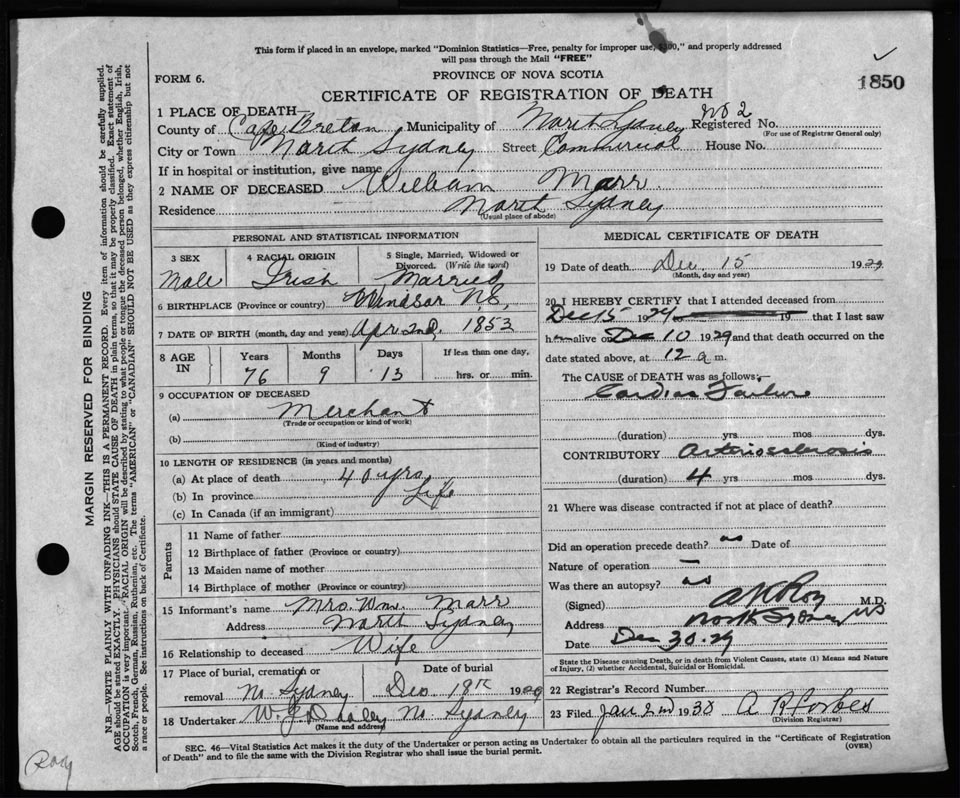 This form if placed in an envelope, marked "Dominion Statistics—Free, penalty for improper use, $300," and properly addressed
will pass through the Mail "FREE"
FORM 6.
PROVINCE OF NOVA SCOTIA
1850
CERTIFICATE OF REGISTRATION OF DEATH
1 PLACE OF DEATH
County of Cape Breton Municipality of North Sydney Registered No. No 2
(For use of Registrar General only)
City or Town North Sydney Street Commercial House No.
If in hospital or institution, give name
2 NAME OF DECEASED William Marr
Residence North Sydney
(Usual place of abode)
PERSONAL AND STATISTICAL INFORMATION
3 SEX Male
4 RACIAL ORIGIN Irish
5 Single, Married, Widowed or Divorced. (Write the word) Married
6 BIRTHPLACE (Province or country) Windsor N.S.
7 DATE OF BIRTH (month, day and year) Apr 2nd, 1853
8 AGE IN Years Months Days If less than one day,
76 9 13 hrs. or min.
9 OCCUPATION OF DECEASED
(a) Merchant
(Trade or occupation or kind of work)
(b)
(Kind of industry)
10 LENGTH OF RESIDENCE (in years and months)
(a) At place of death 40 yrs,
(b) In province Life
(c) In Canada (if an immigrant)
Parents
11 Name of father
12 Birthplace of father (Province or country)
13 Maiden name of mother
14 Birthplace of mother (Province or country)
15 Informant's name Mrs. Wm. Marr
Address North Sydney
16 Relationship to deceased Wife
17 Place of burial, cremation or removal No Sydney
Date of burial Dec 18th 1929
18 Undertaker W. J. Dooley No Sydney
(Name and address)
MEDICAL CERTIFICATE OF DEATH
19 Date of death Dec. 15 1929
(Month, day and year)
20 I HEREBY CERTIFY that I attended deceased from
Dec 15 1929 19 that I last saw
him alive on Dec 10 1929 and that death occurred on the
date stated above, at 12 a m.
The CAUSE of DEATH was as follows:—
Cardiac Failure
(duration) yrs mos dys.
CONTRIBUTORY Arteriosclerosis
(duration) 4 yrs mos dys
21 Where was disease contracted if not at place of death?
Did an operation precede death? no Date of
Nature of operation —
Was there an autopsy? no
(Signed) Roy M.D.
Address North Sydney NS
Date Dec 30. 29
State the Disease causing Death, or in death from Violent Causes, state (1) Means and Nature
of Injury, (2) whether Accidental, Suicidal or Homicidal.
22 Registrar's Record Number
23 Filed Jan 2nd 1930 A R Forbes
(Division Registrar)
SEC. 46—Vital Statistics Act makes it the duty of the Undertaker or person acting as Undertaker to obtain all the particulars required in the "Certificate of Registration
of Death" and to file the same with the Division Registrar who shall issue the burial permit. (OVER)
MARGIN RESERVED FOR BINDING
N.B.—WRITE PLAINLY WITH UNFADING INK—THIS IS A PERMANENT RECORD. Every item of information should be carefully supplied.
AGE should be stated EXACTLY. PHYSICIANS should STATE CAUSE OF DEATH in plain terms, so that it may be properly classified. Exact statement of
OCCUPATION is very important. RACIAL ORIGIN will be described by stating to what people or tongue the deceased person belonged, whether English, Irish,
Scotch, French, German, Russian, Ruthenian, etc. The terms "AMERICAN" or "CANADIAN" SHOULD NOT BE USED as they express citizenship but not
a race or people. See instructions on back of Certificate.
Roy